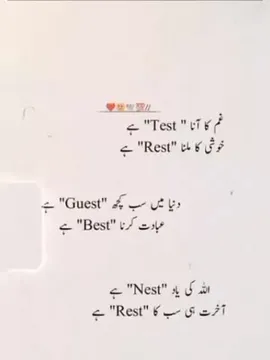 غم کا آنا "Test" ہے
خوشی کا ملنا "Rest" ہے
دنیا میں سب کچھ "Guest" ہے
عبادت کرنا "Best" ہے
اللہ کی یاد "Nest" ہے
آخرت ہی سب کا "Rest" ہے